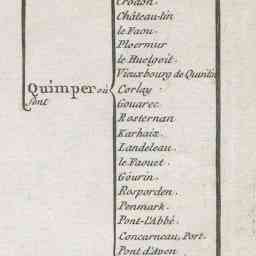 Crodon
Château-lin
le Faou.
Ploermur
le Huelgoit.
Vieuxbourg de Quintin
Quimper où sont
Corlay.
Gouarec.
Rosternan
Karhaix.
Landeleau.
le Faouet.
Gourin.
Rosporden.
Penmark.
Pont-L'Abbé.
Concarneau, Port.
Pont d'Aven